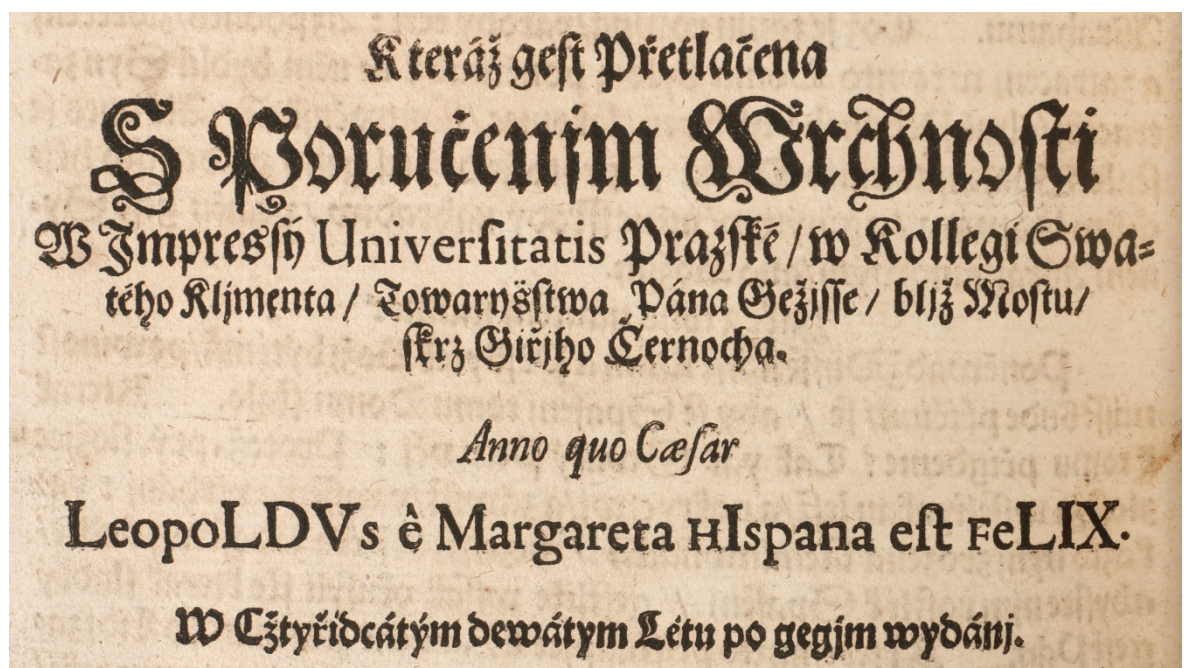 Kteráž geſt Přetlačena
S Poručenjm Wrchnoſti
W Jmpreſſý Univerſitatis Pražſké / w Kollegi Swa⸗
tého Kljmenta / Towaryšſtwa Pána Gežjſſe / bljž Moſtu /
ſkrz Giřjho Černocha.
Anno quo Cæſar
LeopoLDVs è Margareta HIspana eſt FeLIX.
W Cžtyřidcátým dewátym Létu po gegjm wydánj.